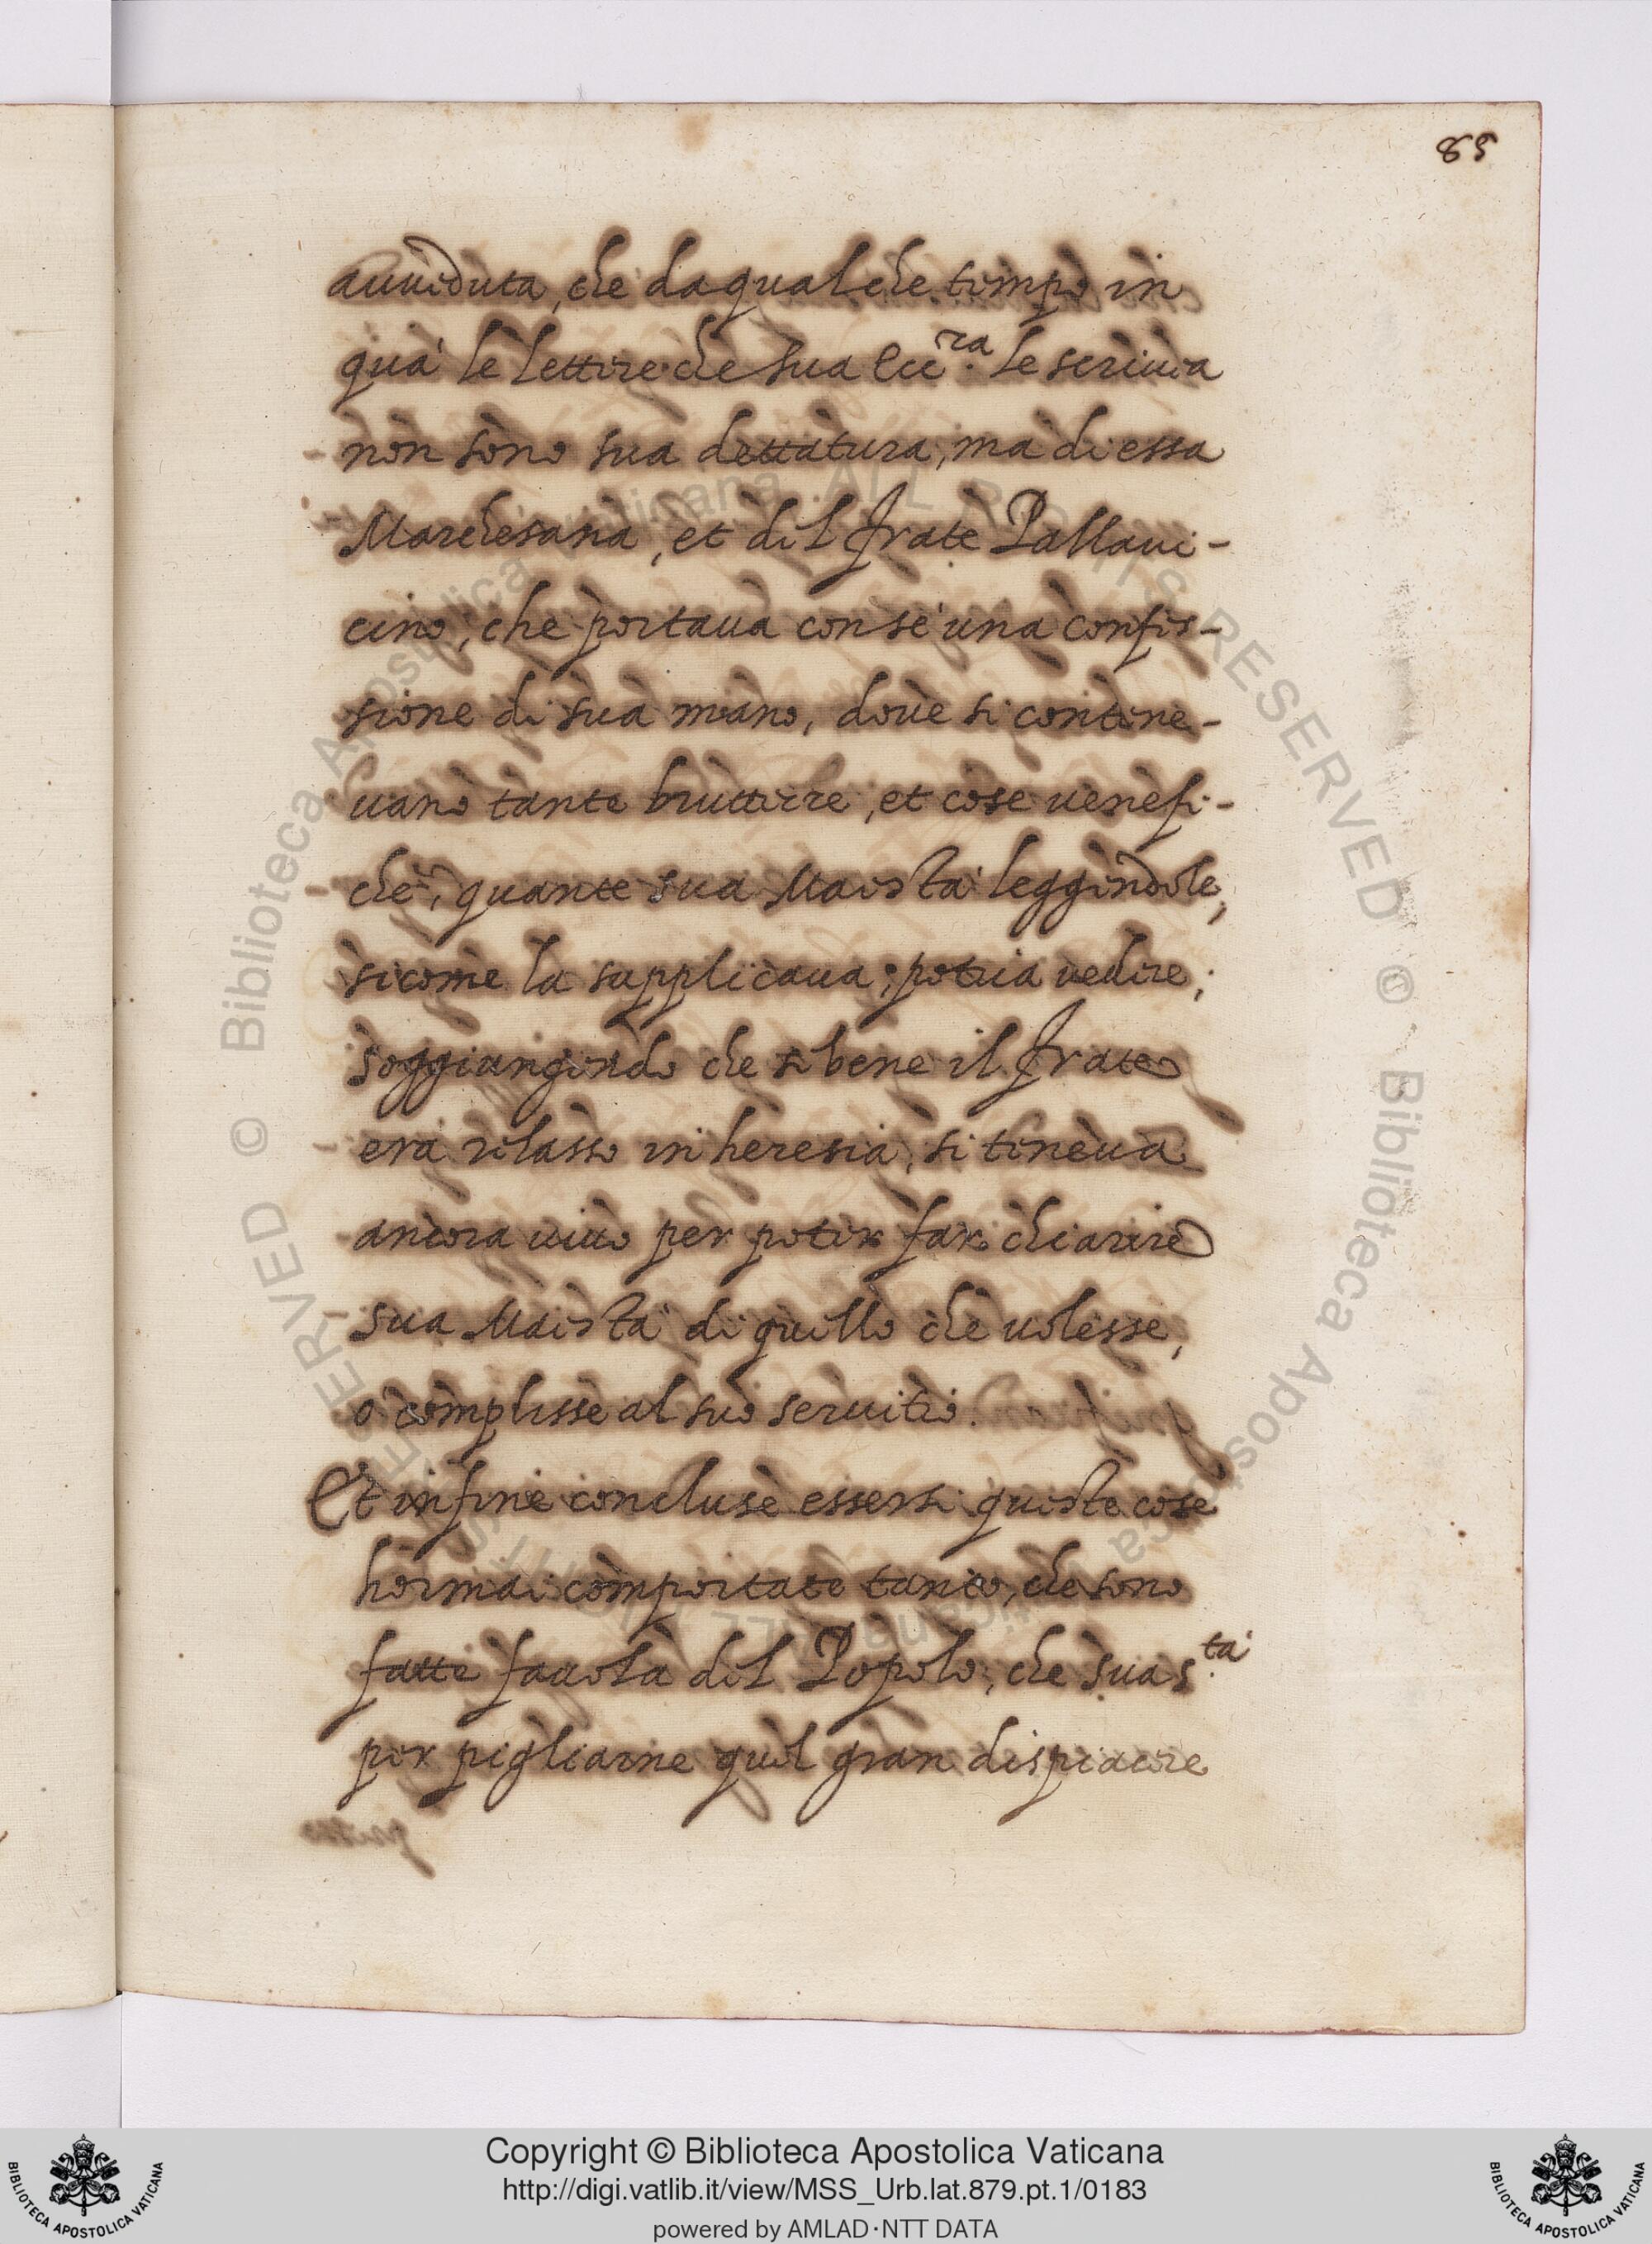 85
auueduta, che da qualche tempo in
quà le lettere che sua Ecc.ra le scriuea
non sono sua dettatura, ma di essa
Marchesana, et del frate Pallaui-
cino, che portaua con se una confes-
sione di sua mano, doue si contene-
uano tante bruttezze, et cose uenefi-
che, quante sua Maestà leggendole,
sicome la supplicaua, potria vedere,
soggiungendo che si bene il frate
era relasso in heresia, si teneua
ancora uiuo per poter far chiarire
sua Maestà di quello che uolesse,
ò complisse al suo seruitio.
Et infine concluse essersi queste cose
hormai comportate tanto, che sono
fatte fauola del Popolo, che sua S.tà
per pigliarne quel gran dispiacere
© Biblioteca Apostolica Vaticana ALL RIGHTS RESERVED
© Biblioteca Apostolica Vaticana ALL RIGHTS RESERVED
BIBLIOTECA APOSTOLICA VATICANA
Copyright © Biblioteca Apostolica Vaticana
http://digi.vatlib.it/view/MSS_Urb.lat.879.pt.1/0183
powered by AMLAD·NTT DATA
BIBLIOTECA APOSTOLICA VATICANA